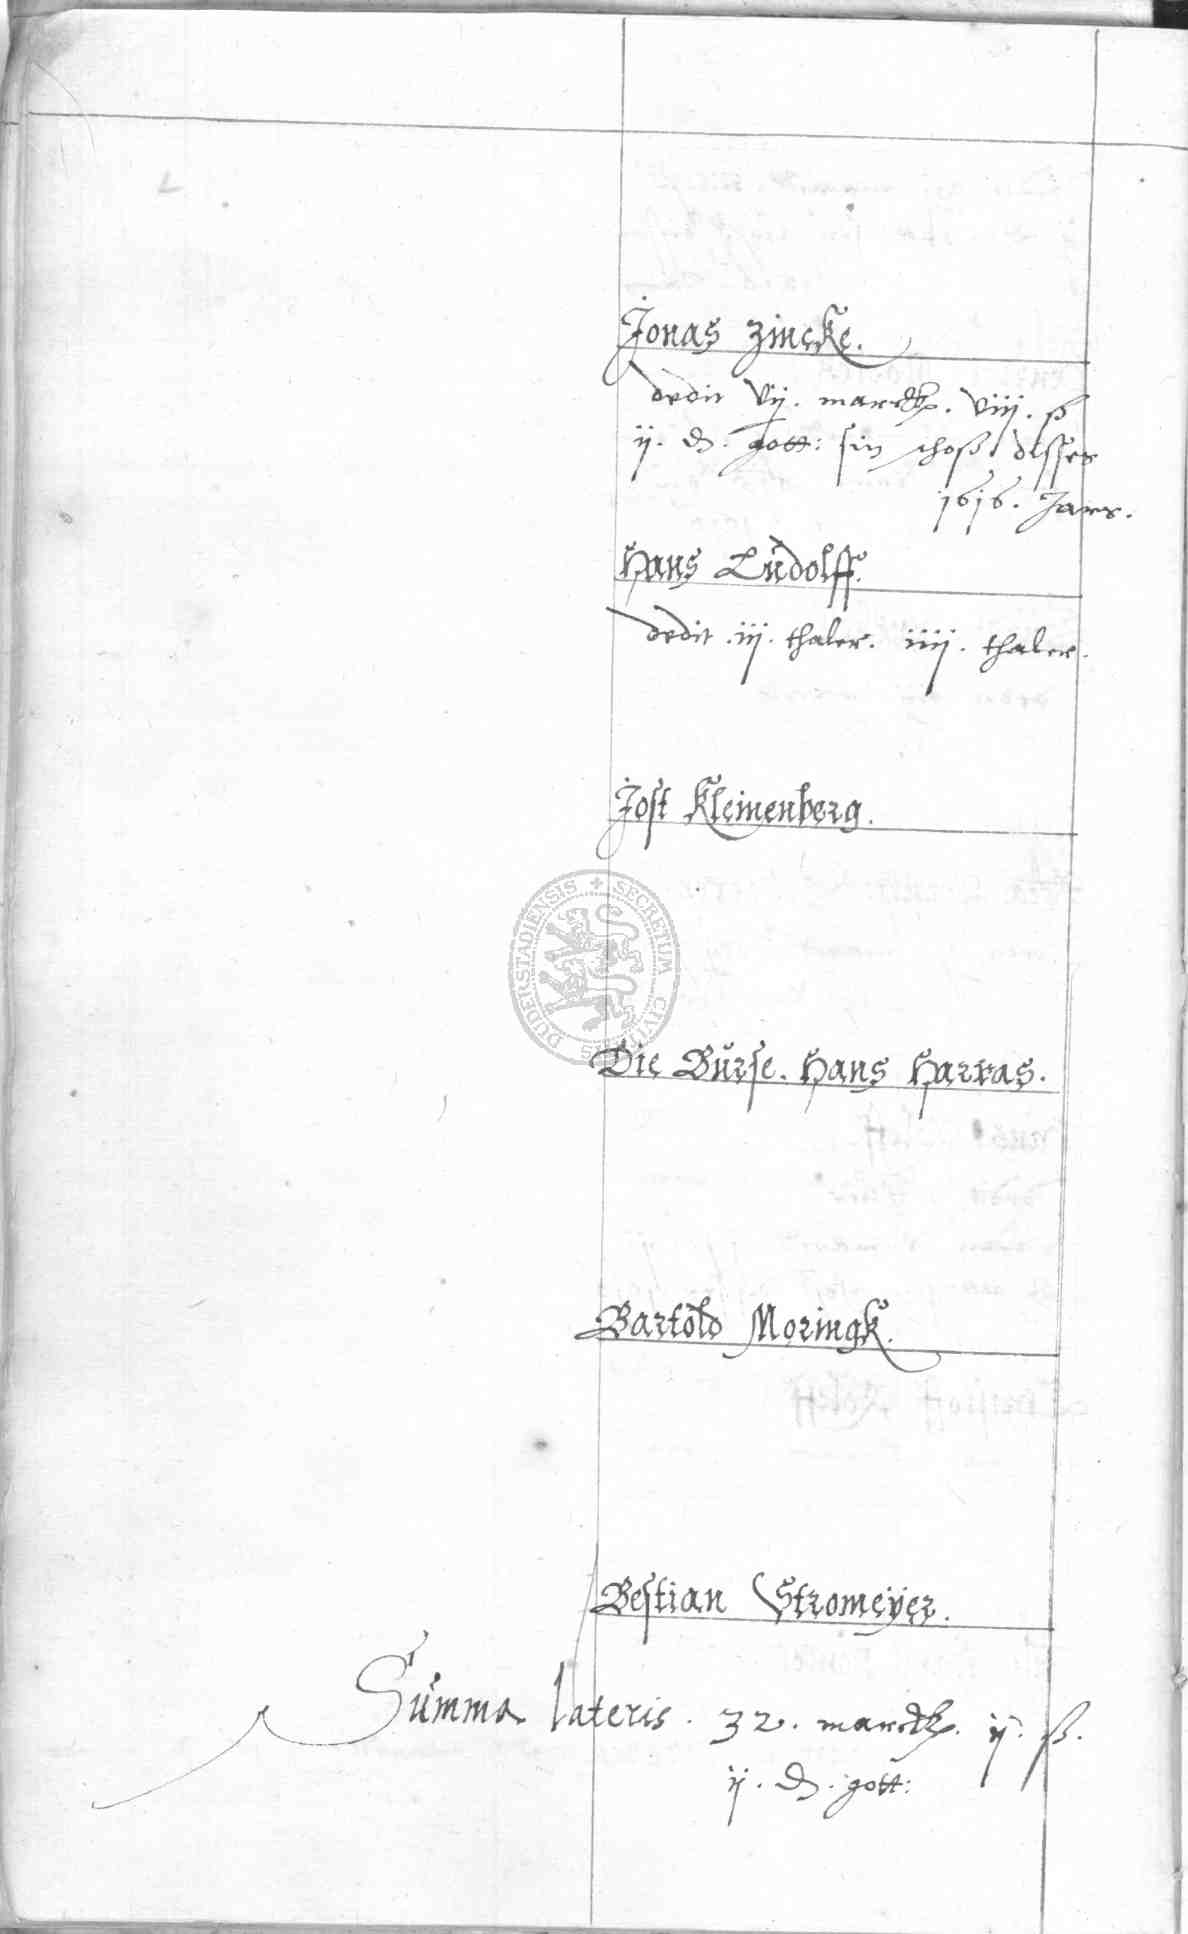 Jonas Zincke.
dedit vij. marck. viij. ß
ij. ₰. gott: sin schoß disses
1616. Jars.
Hans Ludolff.
dedit .iij. thaler. iiij. thaler.
Jost Kleinenberg.
DUDERSTADIENSIS + SECRETUM CIVITATIS
Die Burse. Hans Harras.
Bartold Moringk.
Bestian Stromeÿer.
Summa lateris. 32. marck. ij. ß.
ij. ₰. gott: